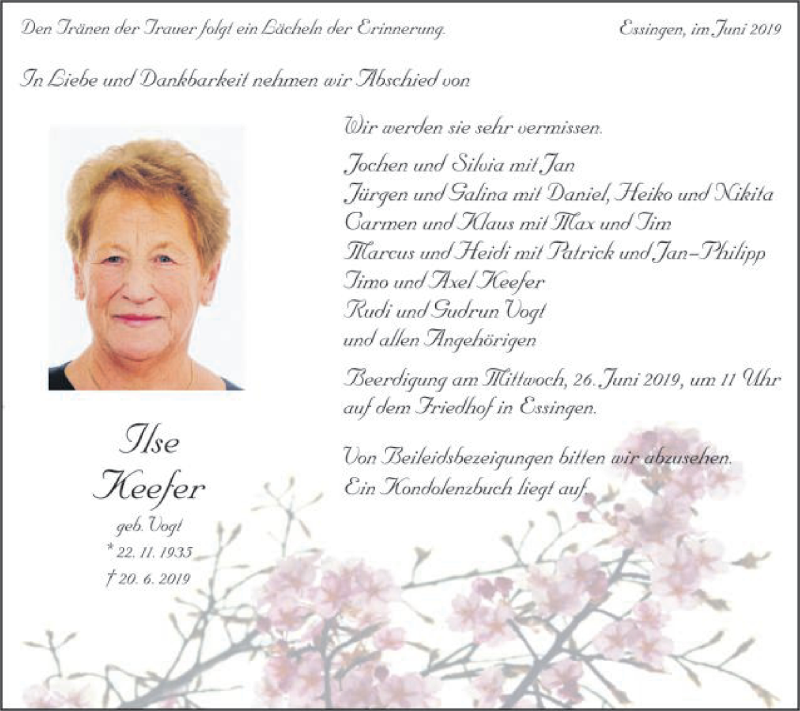 Den Tränen der Trauer folgt ein Lächeln der Erinnerung.
Essingen, im Juni 2019
In Liebe und Dankbarkeit nehmen wir Abschied von
Wir werden sie sehr vermissen.
Jochen und Silvia mit Jan
Jürgen und Galina mit Daniel, Heiko und Nikita
Carmen und Klaus mit Max und Tim
Marcus und Heidi mit Patrick und Jan-Philipp
Timo und Axel Keefer
Rudi und Gudrun Vogt
und allen Angehörigen
Beerdigung am Mittwoch, 26. Juni 2019, um 11 Uhr
auf dem Friedhof in Essingen.
Von Beileidsbezeigungen bitten wir abzusehen.
Ein Kondolenzbuch liegt auf.
Ilse
Keefer
geb. Vogt
* 22. 11. 1935
† 20. 6. 2019